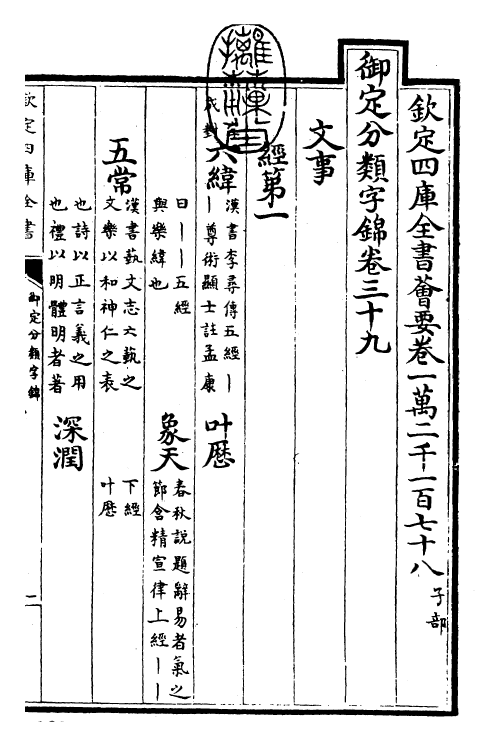 欽定四庫全書薈要卷一萬二千一百七十八 子部
御定分類字錦卷三十九
文事
經第一
六緯
漢書李尋傳五經丨
丨尊術顯士註孟康
叶厯
曰丨丨五經
與樂緯也
象天
春秋說題辭易者氣之
節含精宣律上經丨丨
五常
漢書藝文志六藝之
文樂以和神仁之表
下經
叶厯
也詩以正言義之用
也禮以明體明者著
深潤
欽定四庫全書
御定分類字錦